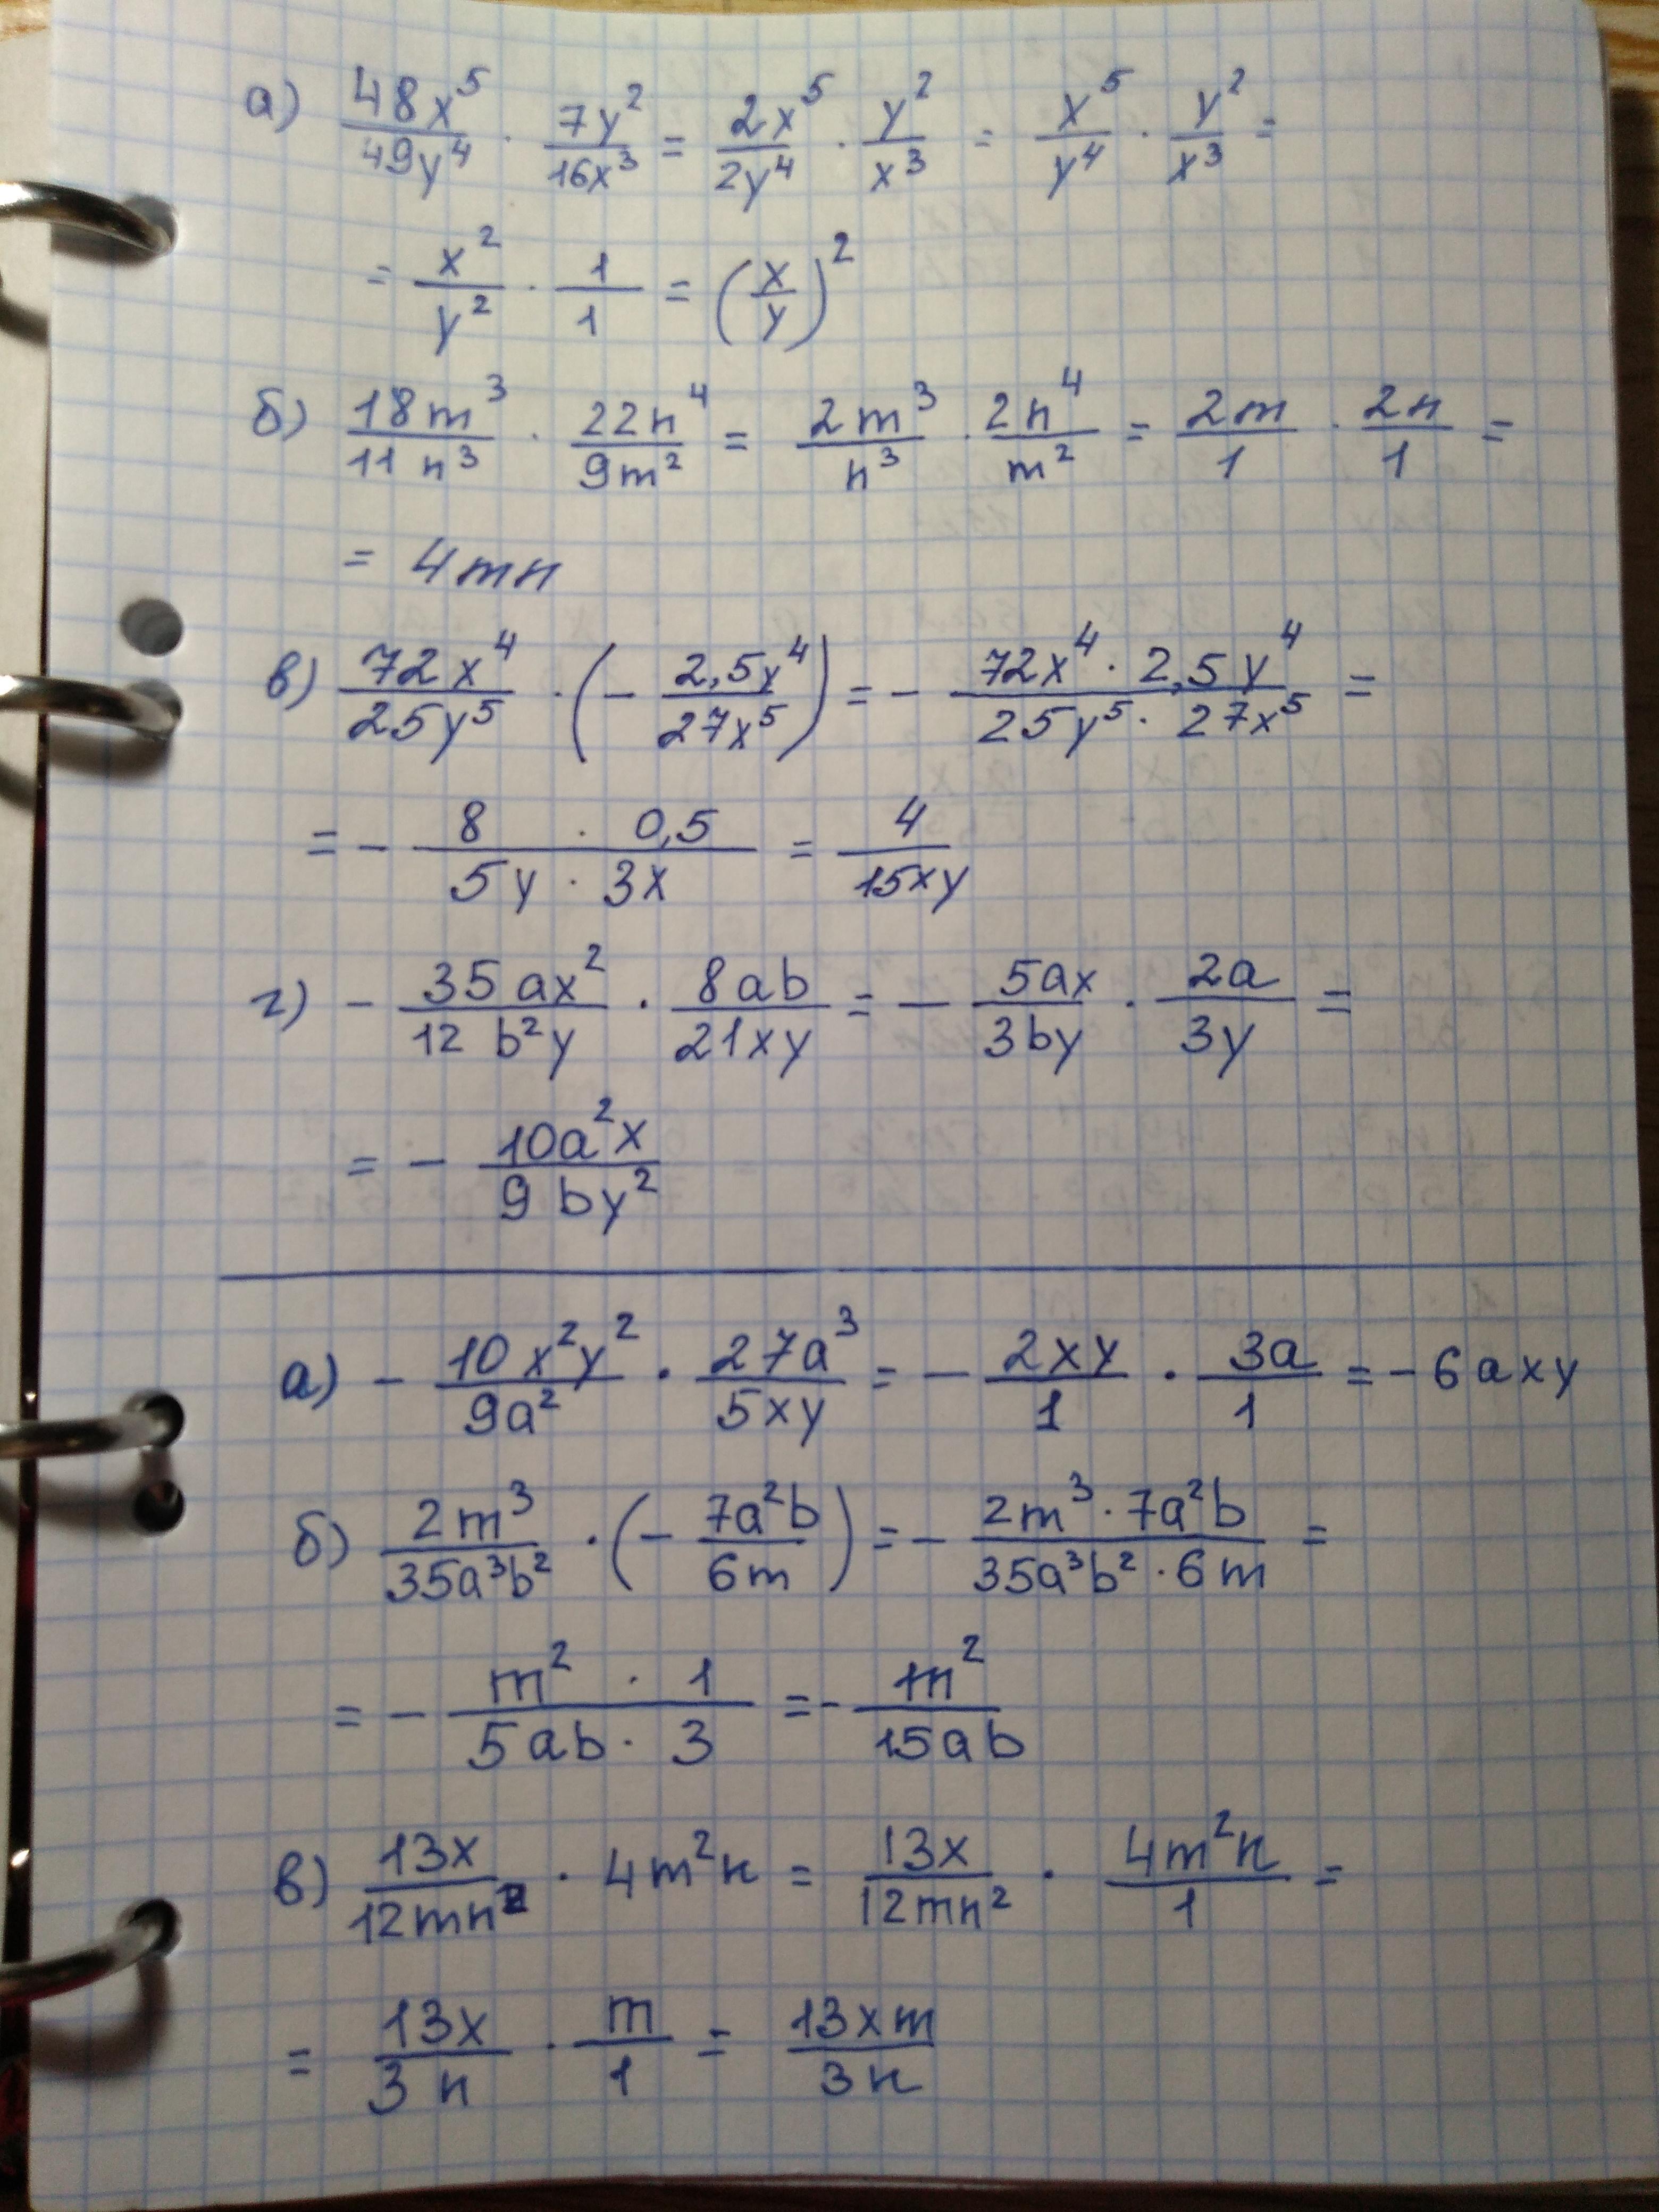 а) 48x⁵/49y⁴ · 7y²/16x³ = 2x⁵/2y⁴ · y²/x³ = x⁵/y⁴ · y²/x³ =
= x²/y² · 1/1 = (x/y)²
б) 18m³/11n³ · 22n⁴/9m² = 2m³/n³ · 2n⁴/m² = 2m/1 · 2n/1 =
= 4mn
в) 72x⁴/25y⁵ · (- 2,5y⁴/27x⁵) = - 72x⁴ · 2,5y⁴/25y⁵ · 27x⁵ =
= - 8 · 0,5/5y · 3x = 4/15xy
г) - 35ax²/12b²y · 8ab/21xy = - 5ax/3by · 2a/3y =
= - 10a²x/9by²
а) - 10x²y²/9a² · 27a³/5xy = - 2xy/1 · 3a/1 = - 6axy
б) 2m³/35a³b² · (- 7a²b/6m) = - 2m³ · 7a²b/35a³b² · 6m =
= - m² · 1/5ab · 3 = - m²/15ab
в) 13x/12mn² · 4m²n = 13x/12mn² · 4m²n/1 =
= 13x/3n · m/1 = 13xm/3n